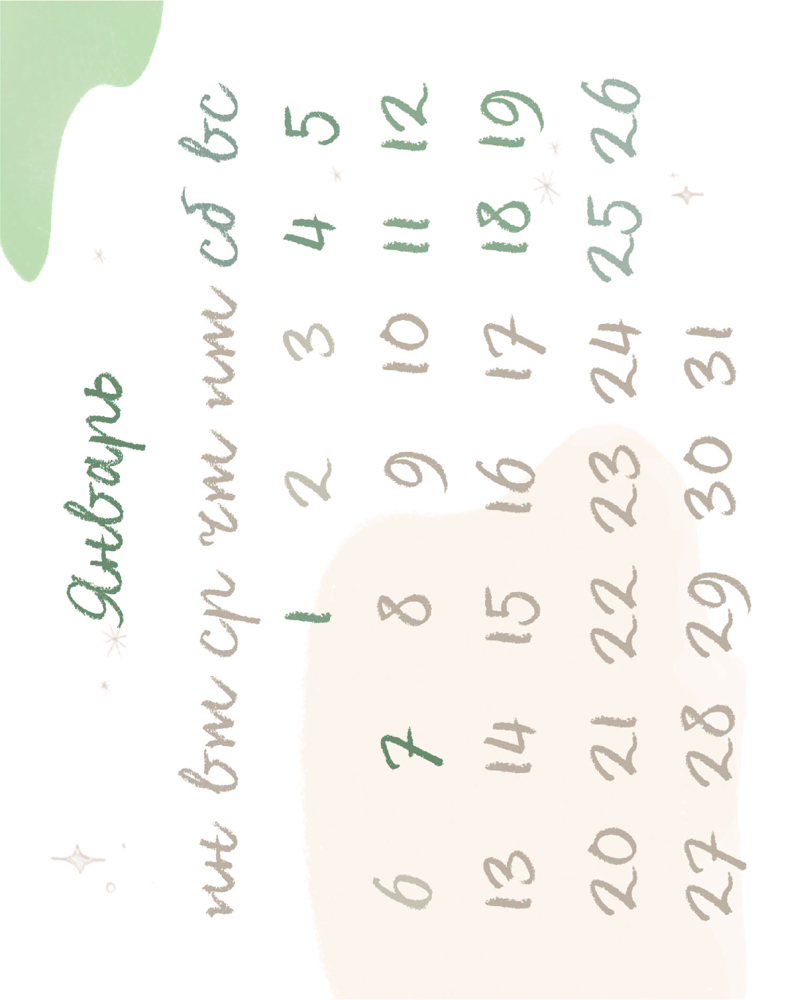 Январь
пн вт ср чт пт сб вс
1 2 3 4 5
6 7 8 9 10 11 12
13 14 15 16 17 18 19
20 21 22 23 24 25 26
27 28 29 30 31